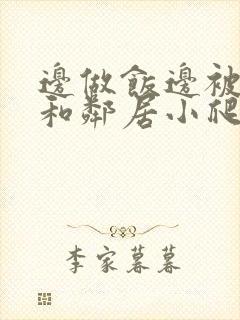 邊做飯邊被
和鄰居小爬
李家暮暮